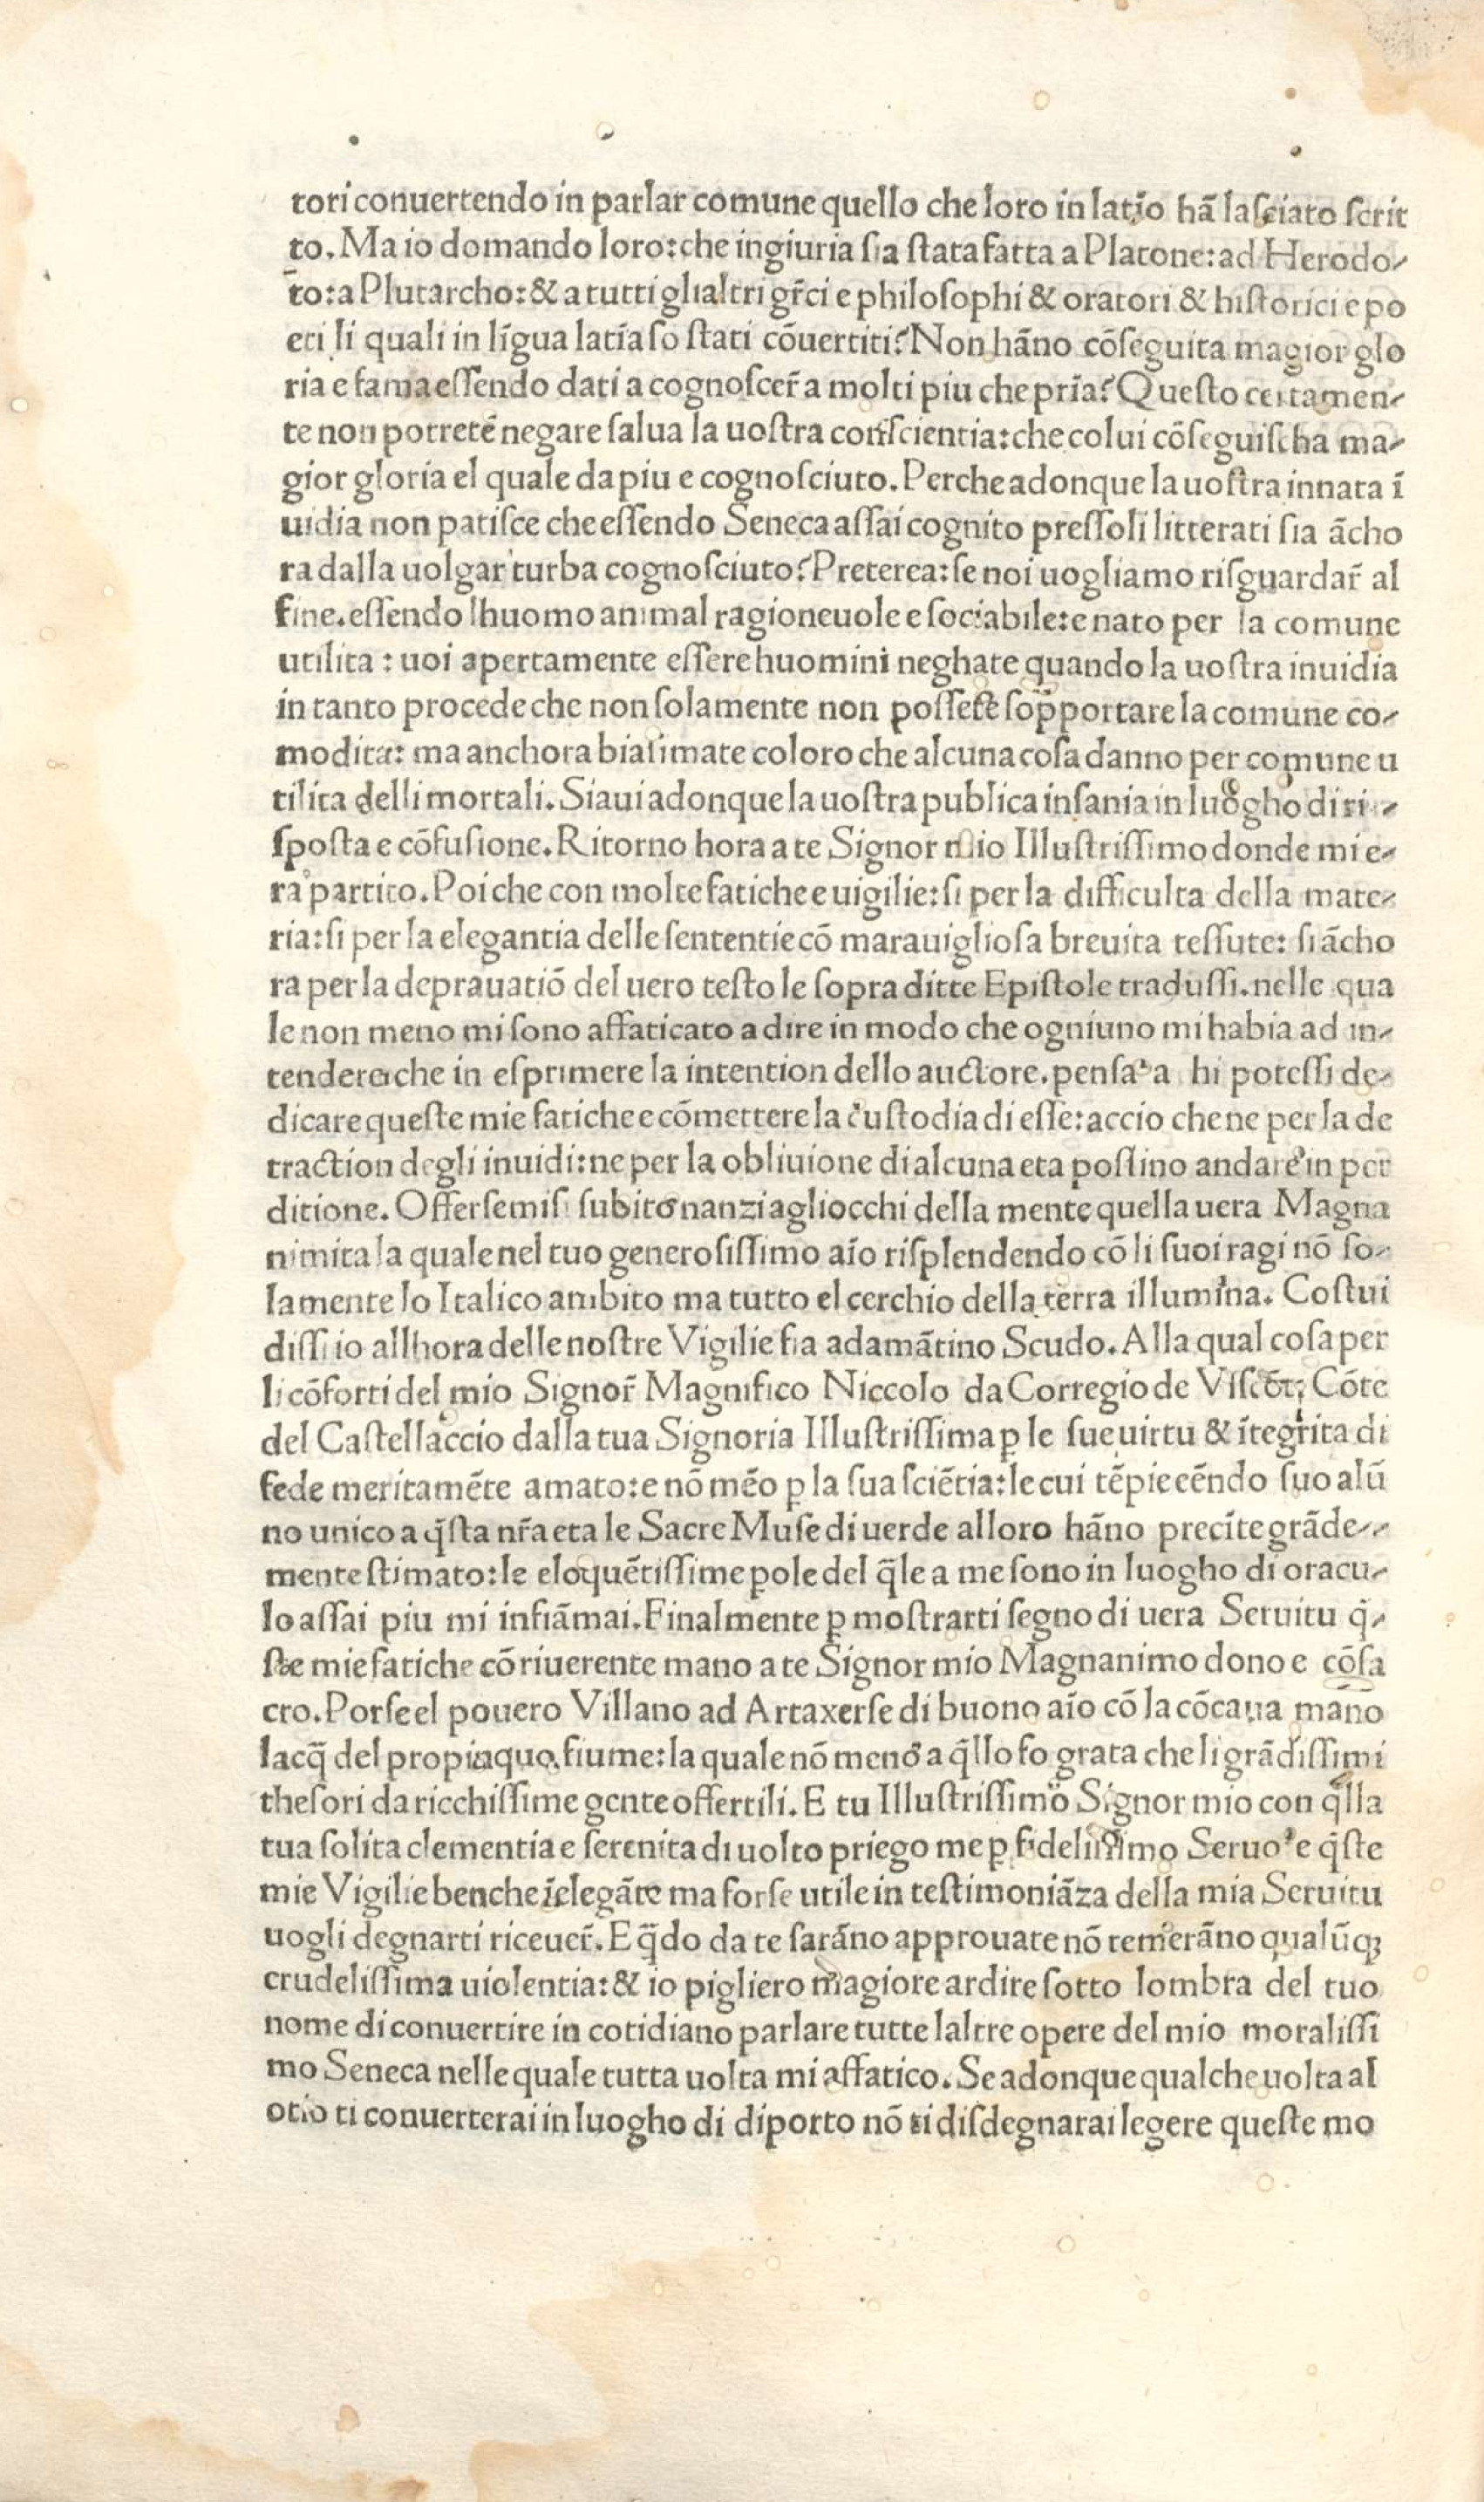 tori conuertendo in parlar comune quello che loro in latĩo hã lasciato scrit
to. Ma io domando loro: che ingiuria sia stata fatta a Platone: ad Herodo-
to: a Plutarcho: & a tutti glialtri gr̃ci e philosophi & oratori & historici e po
eti li quali in lĩgua latĩa so stati cõuertiti? Non hãno cõseguita magior glo
ria e fama essendo dati a cognoscer̃ a molti piu che prĩa? Questo certamen-
te non potretẽ negare salua la uostra conscientia: che colui cõseguischa ma-
gior gloria el quale da piu e cognosciuto. Perche adonque la uostra innata ĩ
uidia non patisce che essendo Seneca assai cognito presso li litterati sia ãcho
ra dalla uolgar turba cognosciuto? Preterea: se noi uogliamo risguardar̃ al
fine. essendo lhuomo animal ragioneuole e sociabile: e nato per la comune
utilita: uoi apertamente essere huomini neghate quando la uostra inuidia
in tanto procede che non solamente non possete sopportare la comune co-
modita: ma anchora biasimate coloro che alcuna cosa danno per comune u
tilita delli mortali. Siaui adonque la uostra publica insania in luogho di ri-
sposta e cõfusione. Ritorno hora a te Signor mio Illustrissimo donde mi e-
ra partito. Poi che con molte fatiche e uigilie: si per la difficulta della mate-
ria: si per la elegantia delle sententie cõ marauigliosa breuita tessute: si ãcho
ra per la deprauatiõ del uero testo le sopra ditte Epistole tradussi. nelle qua
le non meno mi sono affaticato a dire in modo che ogniuno mi habia ad in-
tendere che in esprimere la intention dello auctore. pensa a hi potessi de-
dicare queste mie fatiche e cõmettere la custodia di esse: accio che ne per la de
traction degli inuidi: ne per la obliuione di alcuna eta possino andare in per
ditione. Offersemisi subito nanzi agliocchi della mente quella uera Magna
nimita la quale nel tuo generosissimo aĩo risplendendo cõ li suoi ragi nõ so-
lamente lo Italico ambito ma tutto el cerchio della terra illumina. Costui
dissi io allhora delle nostre Vigilie fia adamãtino Scudo. Alla qual cosa per
li cõforti del mio Signor̃ Magnifico Niccolo da Corregio de Viscõti Cõte
del Castellaccio dalla tua Signoria Illustrissima ꝑ le sue uirtu & ĩtegrita di
fede meritamẽte amato: e nõ mẽo ꝑ la sua sciẽtia: le cui tẽpie eẽndo suo alũ
no unico a q̃sta nr̃a eta le Sacre Muse di uerde alloro hãno precĩte grãde-
mente stimato: le eloquẽtissime ꝑole del q̃le a me sono in luogho di oracu-
lo assai piu mi infiãmai. Finalmente ꝑ mostrarti segno di uera Seruitu q̃-
ste mie fatiche cõ riuerente mano a te Signor mio Magnanimo dono e cõsa
cro. Porse el pouero Villano ad Artaxerse di buono aĩo cõ la cõcaua mano
lacq̃ del propinquo fiume: la quale nõ meno a q̃llo fo grata che li grãdissimi
thesori da ricchissime gente offertili. E tu Illustrissimo Signor mio con q̃lla
tua solita clementia e serenita di uolto priego me ꝑ fidelissimo Seruo e q̃ste
mie Vigilie benche ĩelegãte ma forse utile in testimoniãza della mia Seruitu
uogli degnarti riceuer̃. E q̃do da te sarãno approuate nõ temerãno qualũqꝫ
crudelissima uiolentia: & io pigliero magiore ardire sotto lombra del tuo
nome di conuertire in cotidiano parlare tutte laltre opere del mio moralissi
mo Seneca nelle quale tutta uolta mi affatico. Se adonque qualche uolta al
otio ti conuerterai in luogho di diporto nõ ti disdegnarai legere queste mo